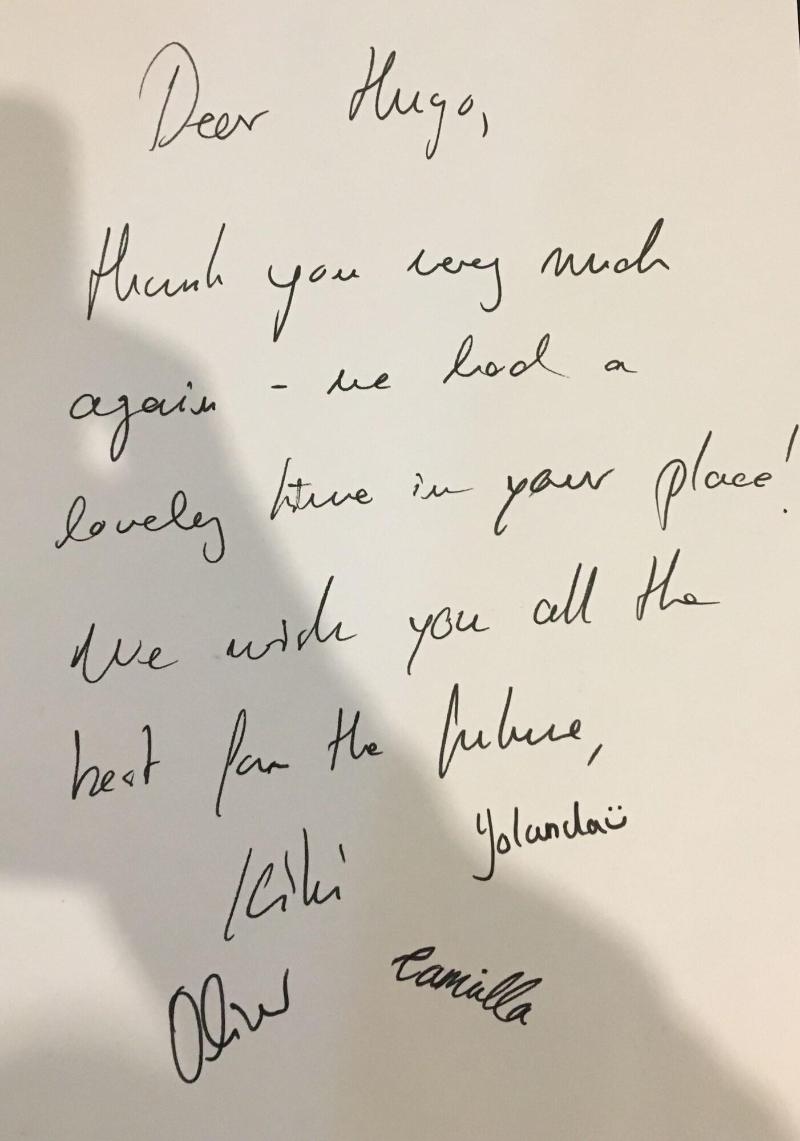 Dear Hugo,
thank you very much
again - we had a
lovely time in your place!
We wish you all the
best for the future,
Yolanda ü
Kiki
Oliver
Camilla